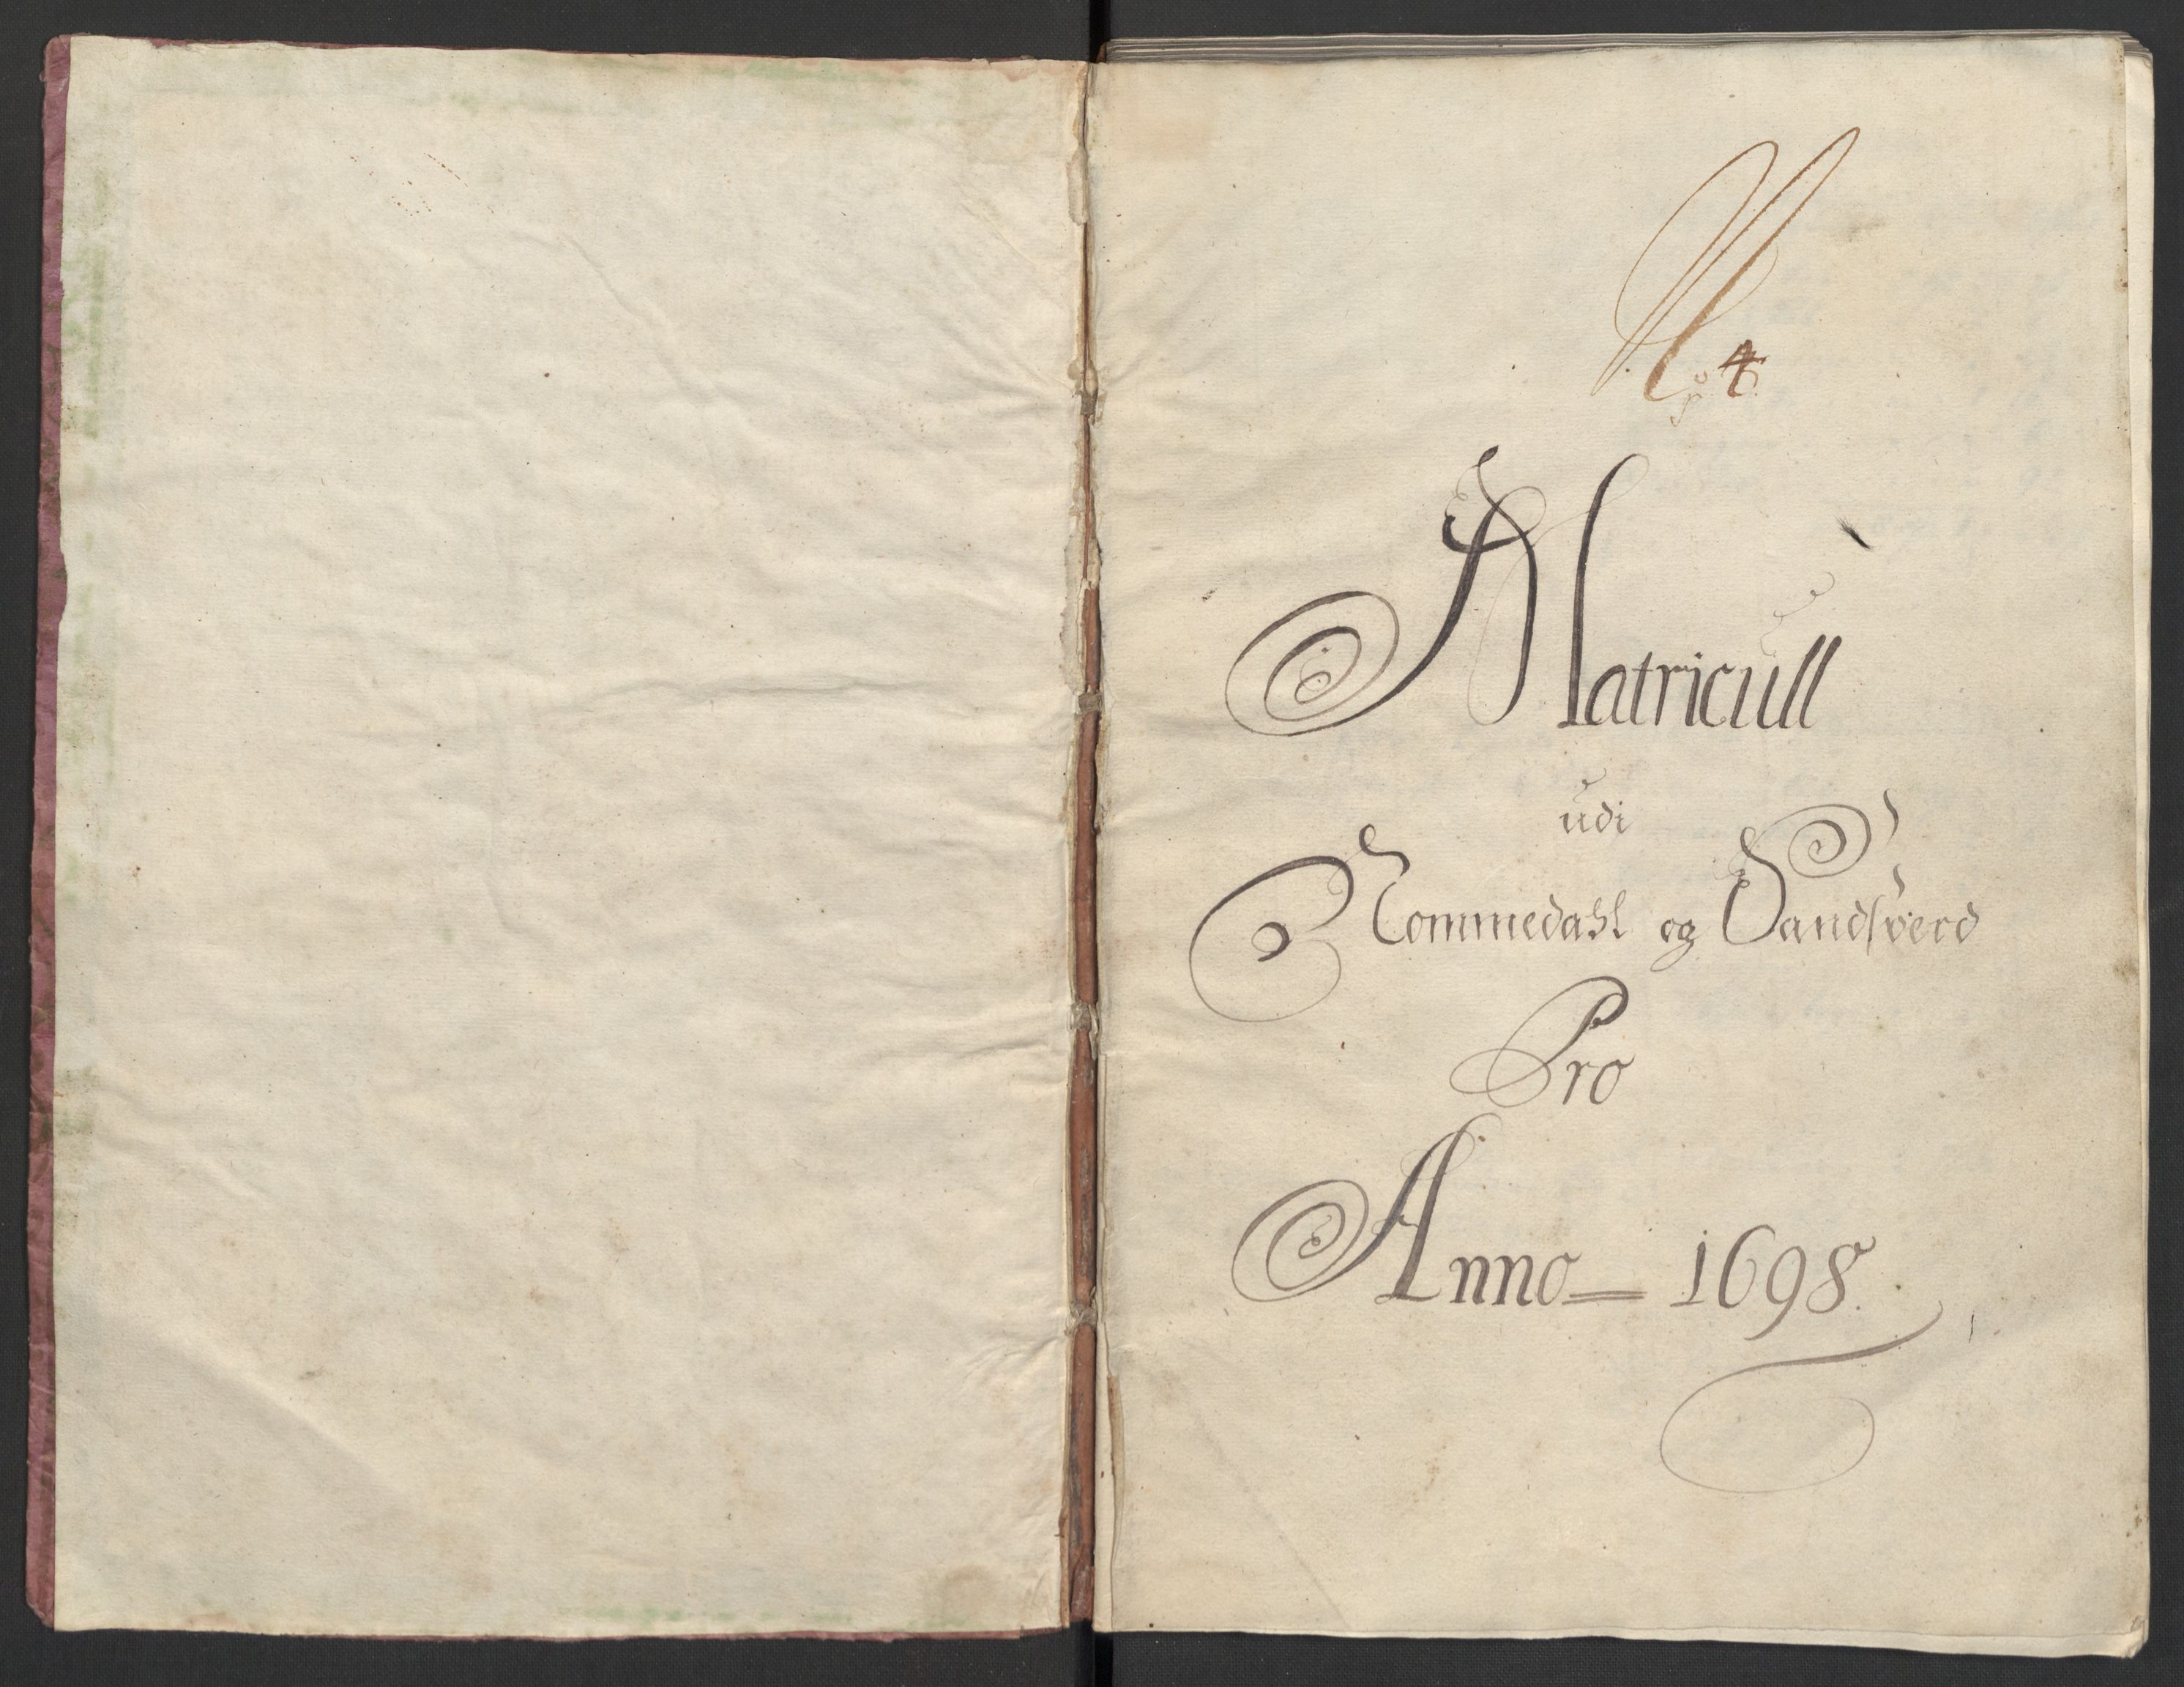 No 4.
Matricull
udi
Nommedahl og Sandsverd
Pro
Anno 1698.